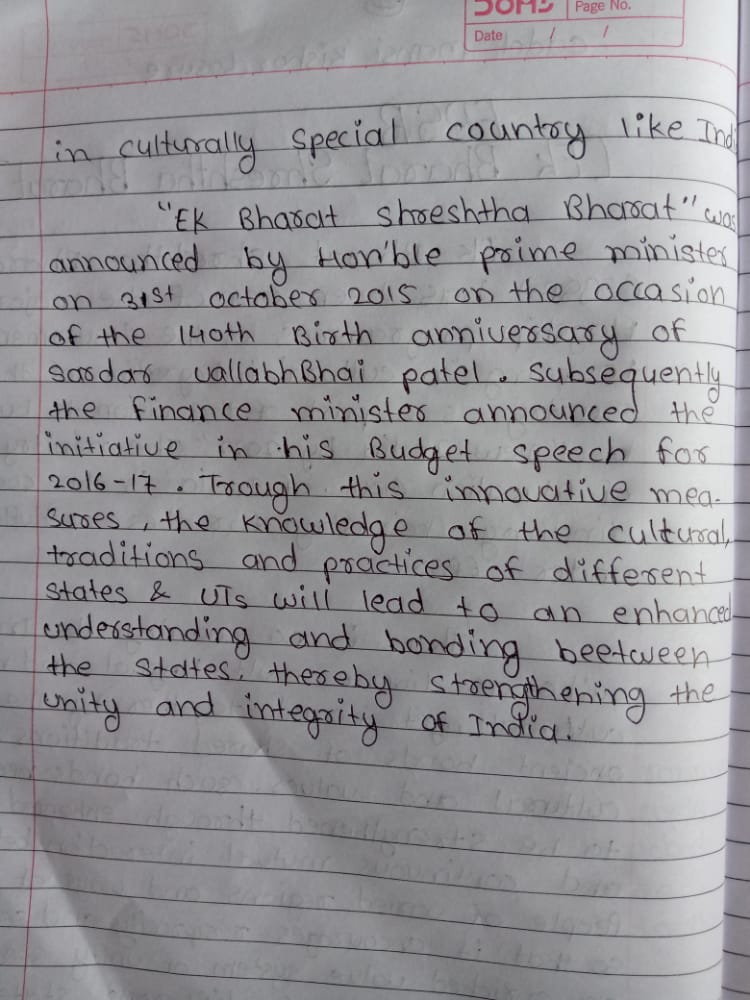 Page No.
Date / /
in culturally special country like Ind
"Ek Bharat Shreshtha Bharat" was
announced by Hon'ble prime minister
on 31st october 2015 on the occasion
of the 140th Birth anniversary of
Sardar vallabhBhai patel. Subsequently
the finance minister announced the
initiative in his Budget speech for
2016-17. Trough this innovative mea-
sures, the knowledge of the cultural,
traditions and practices of different
states & UTs will lead to an enhanced
understanding and bonding beetween
the states, thereby strengthening the
unity and integrity of India.